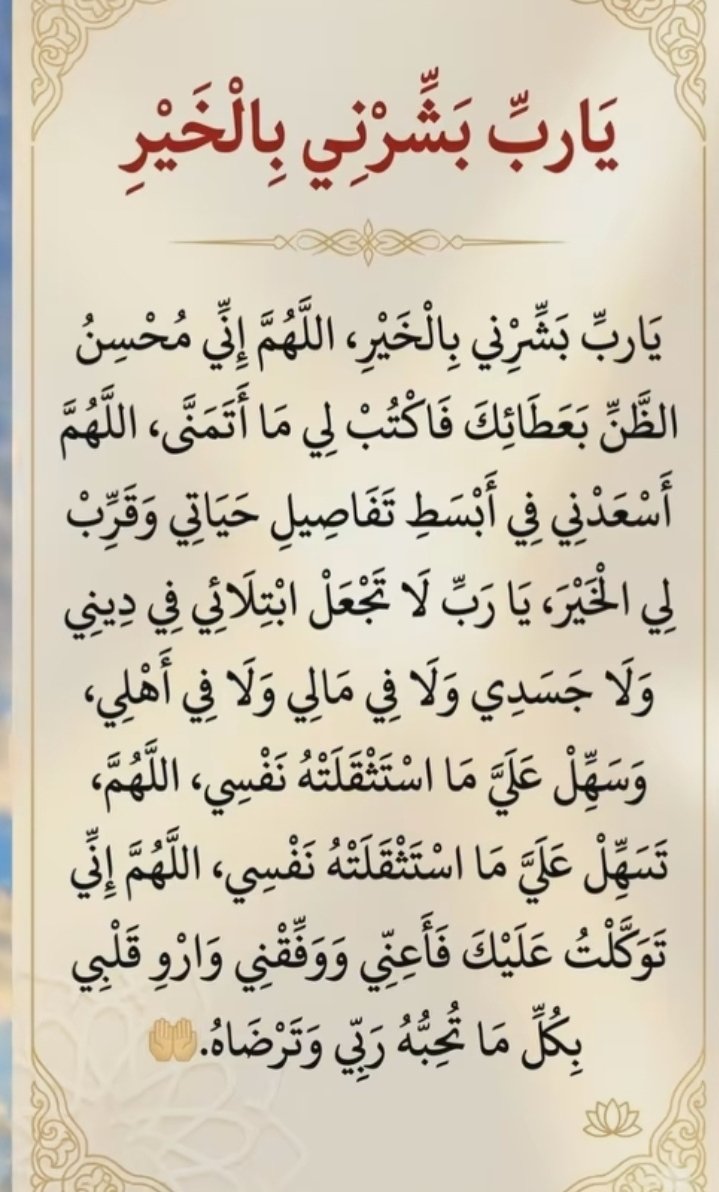 يَاربِّ بَشِّرْنِي بِالْخَيْرِ
يَاربِّ بَشِّرْنِي بِالْخَيْرِ، اللَّهُمَّ إِنِّي مُحْسِنُ
الظَّنِّ بَعَطَائِكَ فَاكْتُبْ لِي مَا أَتَمَنَّى، اللَّهُمَّ
أَسْعَدْنِي فِي أَبْسَطِ تَفَاصِيلِ حَيَاتِي وَقَرِّبْ
لِي الْخَيْرَ، يَا رَبِّ لَا تَجْعَلْ ابْتِلَائِي فِي دِينِي
وَلَا جَسَدِي وَلَا فِي مَالِي وَلَا فِي أَهْلِي،
وَسَهِّلْ عَلَيَّ مَا اسْتَثْقَلَتْهُ نَفْسِي، اللَّهُمَّ،
تَسَهِّلْ عَلَيَّ مَا اسْتَثْقَلَتْهُ نَفْسِي، اللَّهُمَّ إِنِّي
تَوَكَّلْتُ عَلَيْكَ فَأَعِنِّي وَوَفِّقْنِي وَارْوِ قَلْبِي
بِكُلِّ مَا تُحِبُّهُ رَبِّي وَتَرْضَاهُ.🤲